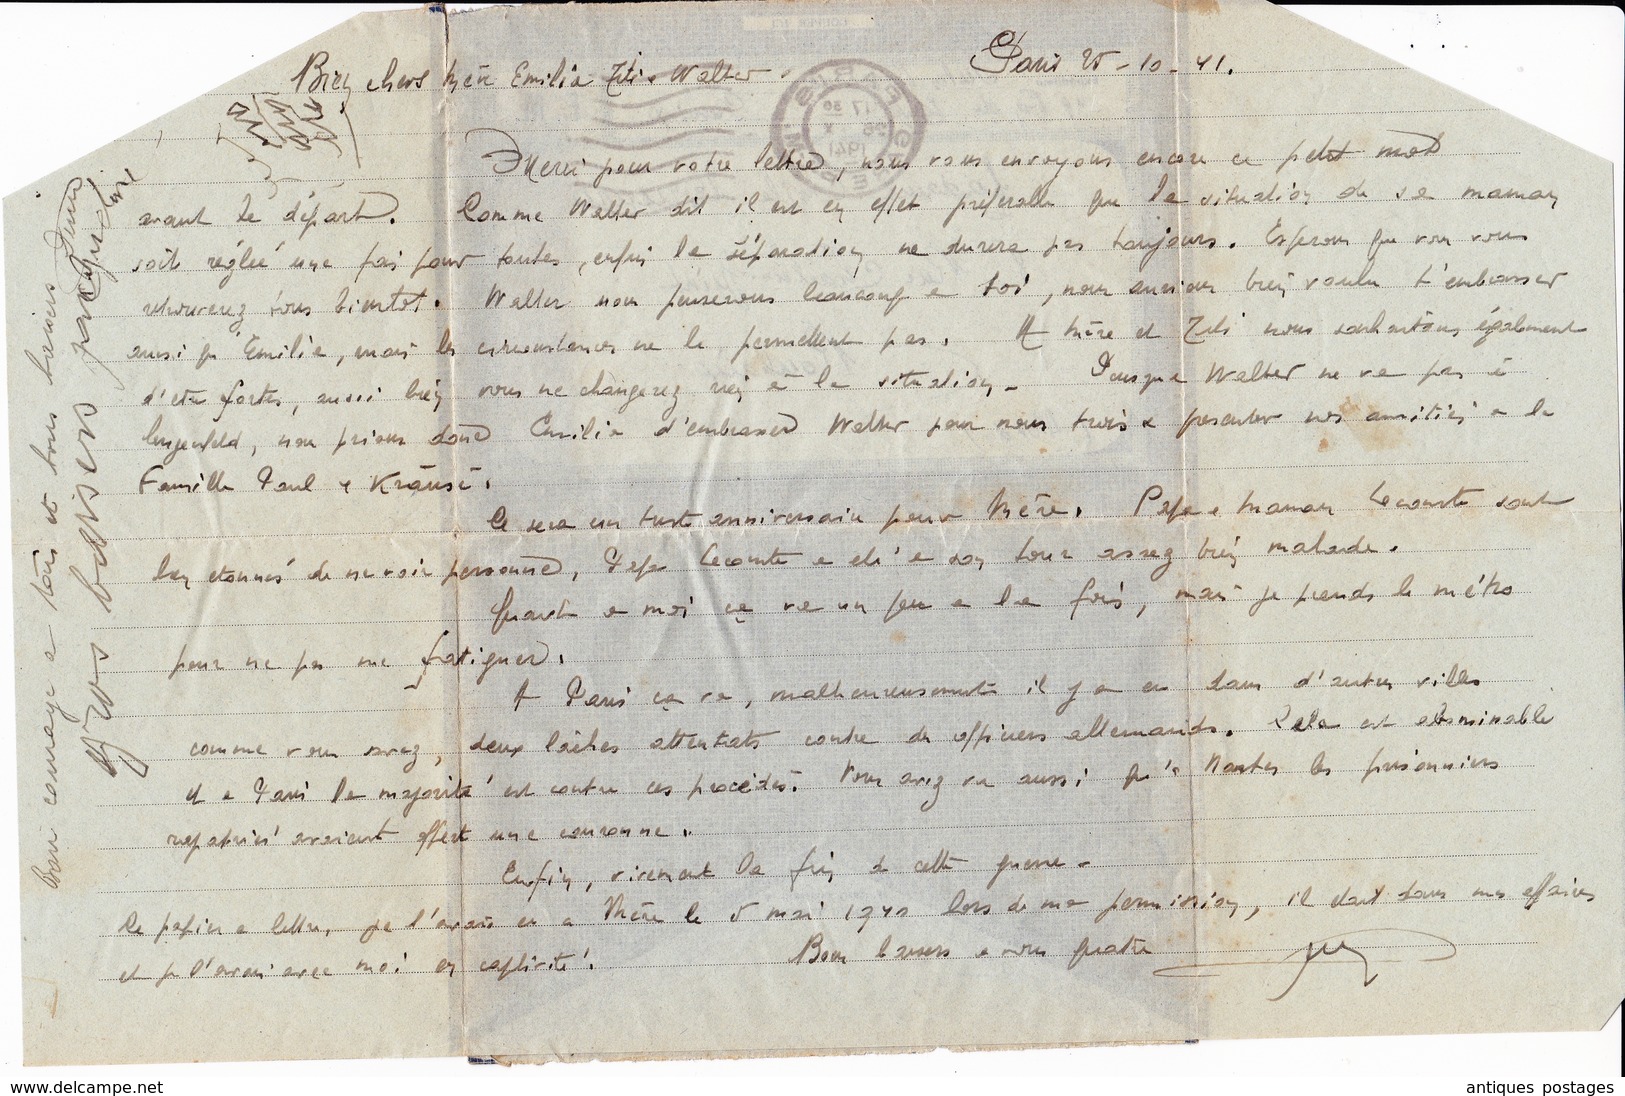 Bien chers Mère Emilia Titi & Walter
Paris 25-10-41.
Merci pour votre lettre, nous vous envoyons encore ce petit mot
avant le départ. Comme Walter dit il est en effet préférable que la situation de sa maman
soit réglée une fois pour toutes, enfin la séparation ne durera pas toujours. Esperons que vous vous
retrouverez tous bientot. Walter nous penserons beaucoup a toi, nous aurions bien voulu t'embrasser
aussi qu'Emilia, mais les circonstances ne le permettent pas. A Mère et Titi nous souhaitons également
d'etre fortes, aussi bien vous ne changerez rien à la situation - Puisque Walter ne va pas à
Lengenfeld, nous prions donc Emilia d'embrasser Walter pour nous trois & presenter nos amitiés a la
Famille Paul & Krause.
Ce sera un triste anniversaire pour Mère. Papa & Maman Lecomte sont
bien etonnés de ne voir personne, Papa Lecomte a été a son tour assez bien malade.
Quant a moi ça va un peu a la fois, mais je prends le métro
pour ne pas me fatiguer.
A Paris ça va, malheureusement il y a eu dans d'autres villes
comme vous savez, deux lâches attentats contre des officiers allemands. Cela est abominable
et a Paris la majorité est contre ces procédés. Vous avez vu aussi qu'a Nantes les prisonniers
rapatriés avaient offert une couronne.
Enfin, vivement la fin de cette guerre -
Le papier a lettre, je l'avais eu a Mère le 5 mai 1940 lors de ma permission, il etait dans mes affaires
et je l'avais avec moi en captivité.
Bons baisers a vous quatre
bon courage a tous et bons baisers
gros baisers
PARIS
17 30
25 X
1941
COUPER ICI
www.delcampe.net
antiques postages